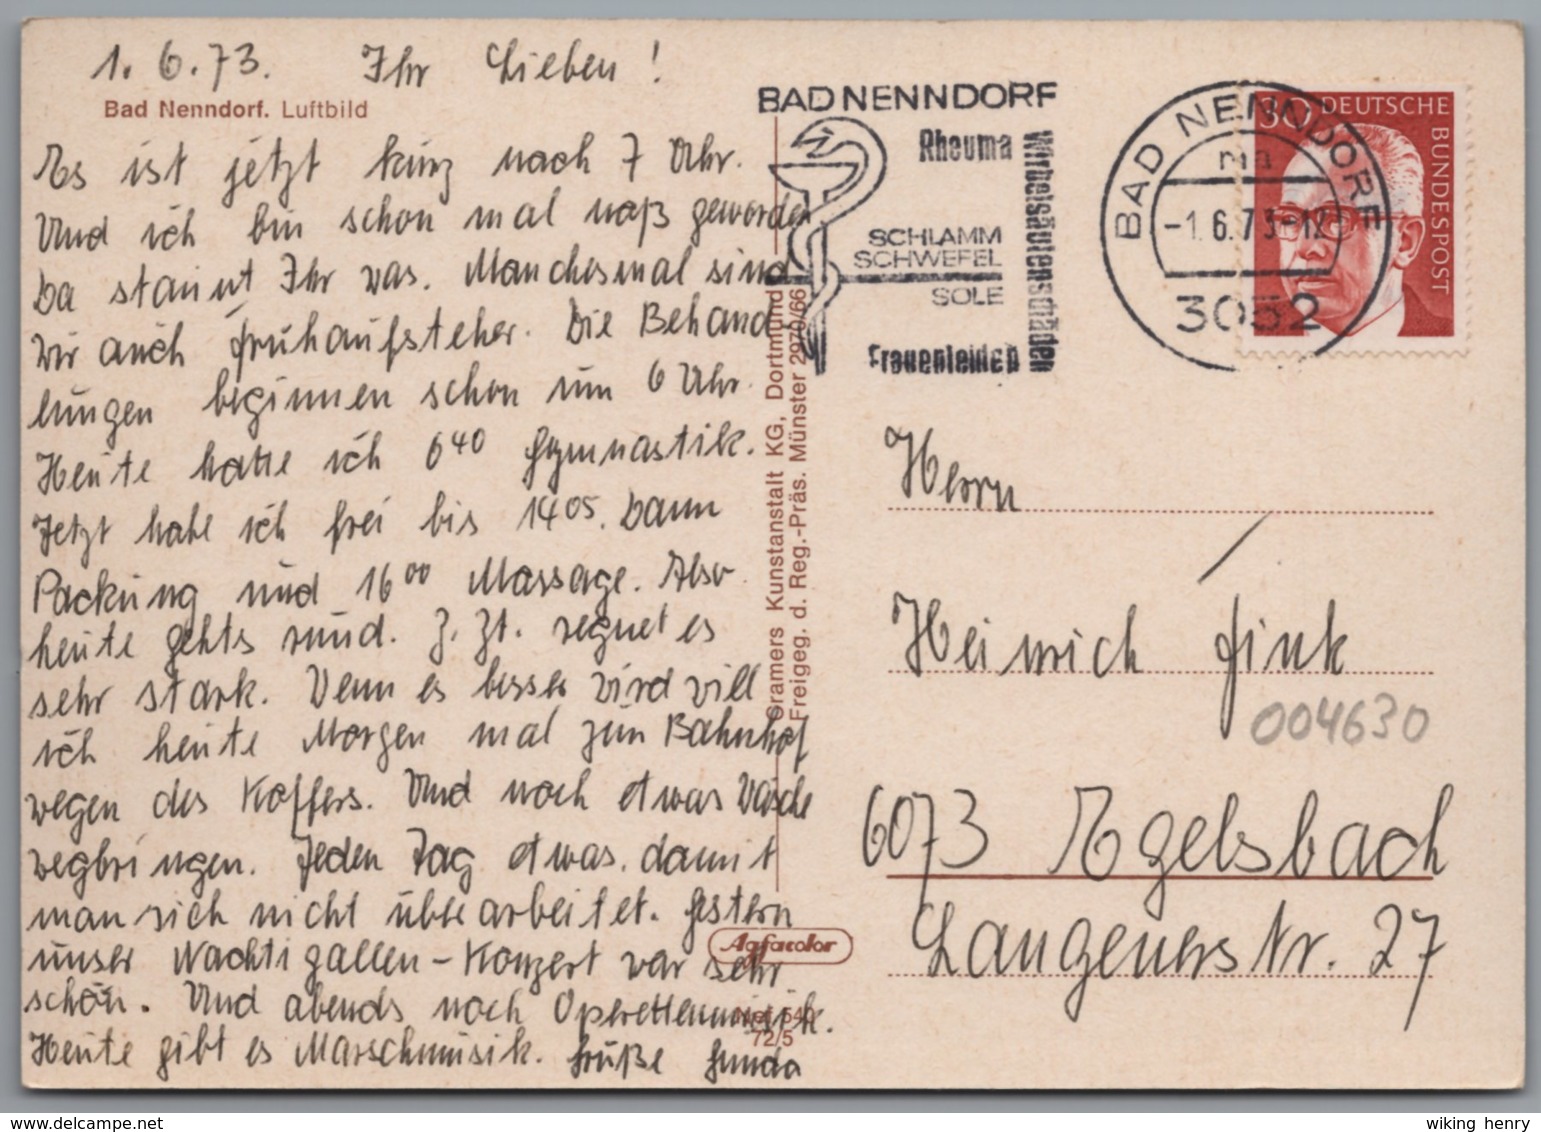 1. 6. 73. Ihr Lieben!
Bad Nenndorf. Luftbild
Es ist jetzt kurz nach 7 Uhr.
Und ich bin schon mal naß geworden
Da staunt Ihr was. Manchesmal sind
wir auch Frühaufsteher. Die Behand-
lungen beginnen schon um 6 Uhr.
Heute hatte ich 6⁴⁰ Gymnastik.
Jetzt habe ich frei bis 14⁰⁵. Dann
Packung und 16⁰⁰ Massage. Also
heute gehts rund. Z. Zt. regnet es
sehr stark. Wenn es besser wird will
ich heute Morgen mal zum Bahnhof
wegen des Koffers. Und noch etwas Wäsche
wegbringen. Jeden Tag etwas. damit
man sich nicht überarbeitet. Gestern
unser Nachtigallen-Konzert war sehr
schön. Und abends noch Operettenmusik.
Heute gibt es Marschmusik. Grüße Gunda
Cramers Kunstanstalt KG, Dortmund
Freigeg. d. Reg.-Präs. Münster 2970/66
Agfacolor
72/5
BAD NENNDORF
Rheuma
Wirbelsäulenschäden
SCHLAMM
SCHWEFEL
SOLE
Frauenleiden
BAD NENNDORF
-1.6.73-12
3052
30 DEUTSCHE
BUNDESPOST
Herrn
Heinrich Fink
004630
6073 Egelsbach
Langenerstr. 27
wiking henry